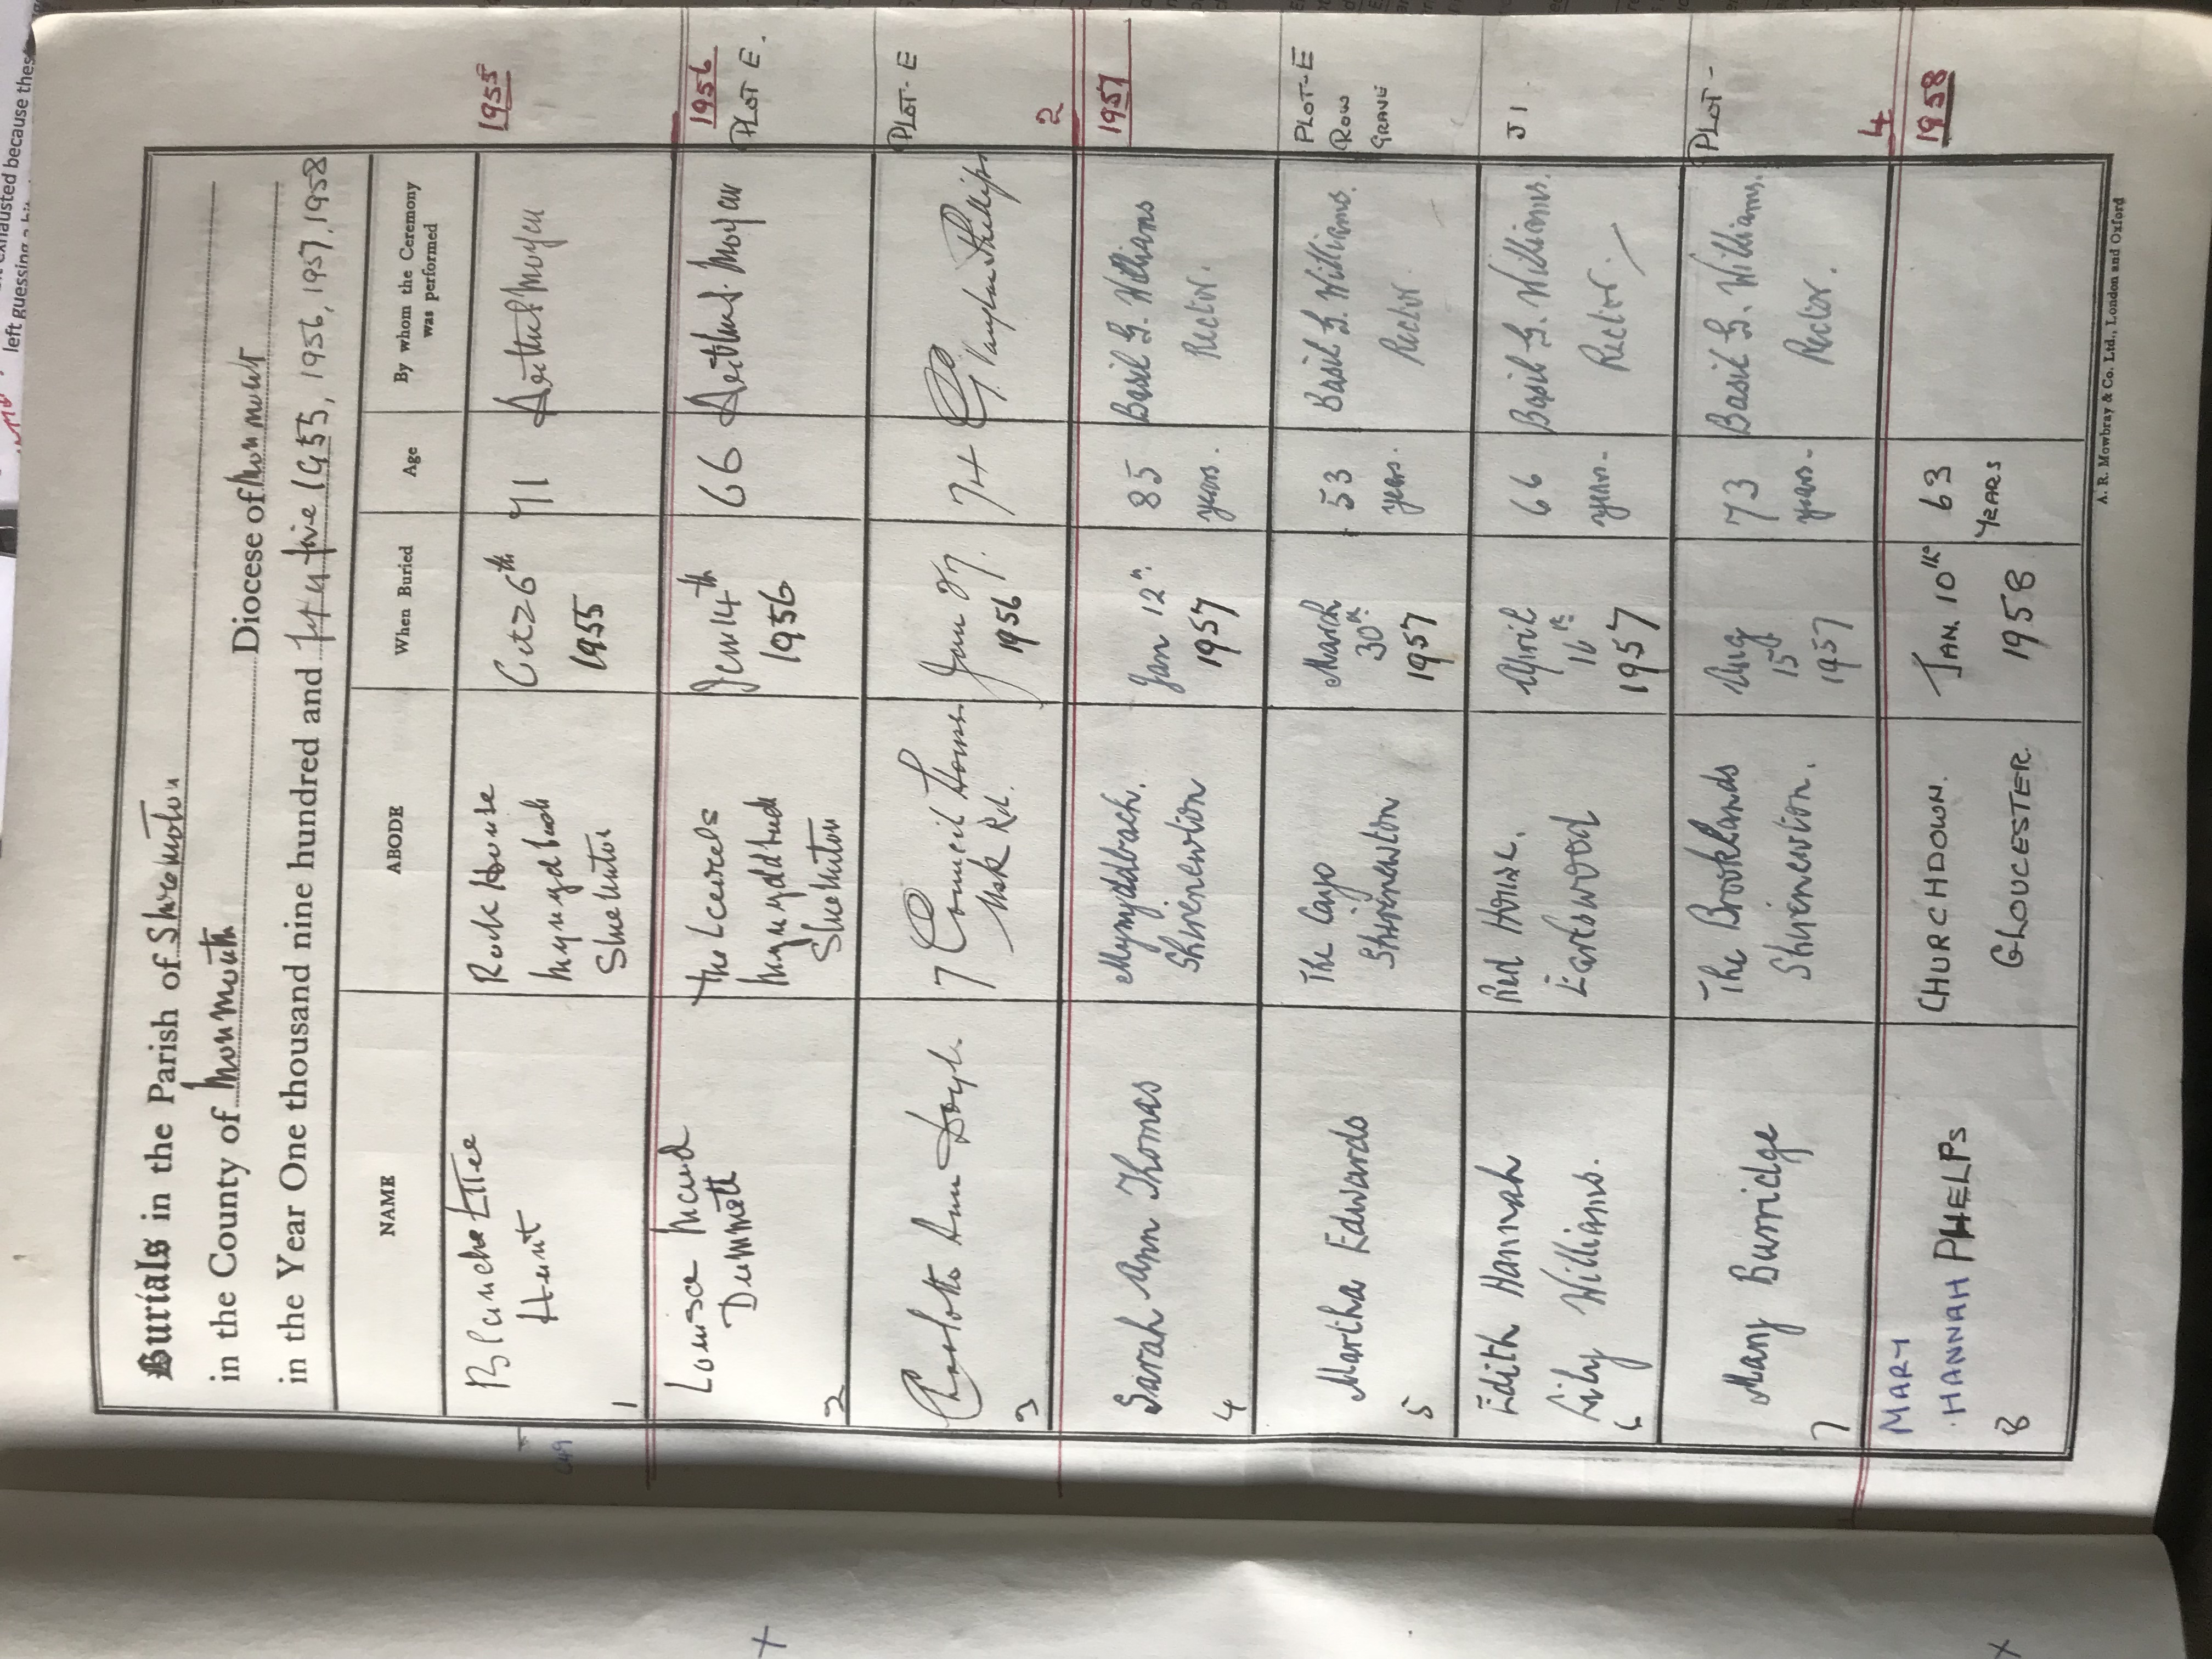 Burials in the Parish of Shirenewton
in the County of Monmouth Diocese of Monmouth
in the Year One thousand nine hundred and fifty five 1955, 1956, 1957, 1958
NAME ABODE When Buried Age By whom the Ceremony was performed
1955
Blanche Ettee
Hunt
1
Rock House
Mynyddbach
Oct 26th
1955
71
Arthur
1956
PLOT E.
Louisa Maud
2
The Laurels
Mynyddbach
14th
1956
66
Arthur
PLOT-E
Charlotte Ann Doyle
3
7 Council Houses
Usk Rd.
27.
1956
74
Vaughan Phillips
2
1957
Sarah Ann Thomas
4
Mynyddbach.
Shirenewton
Jan 12th
1957
85
years.
Basil G. Williams
Rector.
PLOT-E
ROW
GRAVE
Martha Edwards
5
The
Shirenewton
March
30th
1957
53
years.
Basil G. Williams.
Rector
J1
Edith Hannah
Lily Williams.
6
Red House.
Earlswood
April
1957
66
years.
Basil G. Williams.
Rector.
PLOT-
Mary Burridge
7
The Brooklands
Shirenewton.
Aug
15th
1957
73
years.
Basil G. Williams.
Rector.
4
1958
MARY
HANNAH PHELPS
8
CHURCHDOWN.
GLOUCESTER.
JAN. 10the
1958
63
YEARS
A. R. Mowbray & Co. Ltd., London and Oxford
C49
exhausted because thes
left guessing